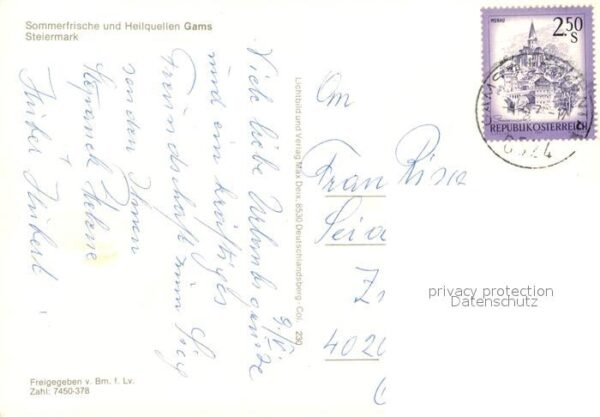 Sommerfrische und Heilquellen Gams
Steiermark
Viele liebe Urlaubsgrüsse
und ein kräftiges
Freundschaft zum Sieg
senden Ihnen
Helene
Hubert
Lichtbild und Verlag Max Derx, 8530 Deutschlandsberg - Col. 230
An
Frau
4020
MURAU
2.50
S
REPUBLIK ÖSTERREICH
8524
privacy protection
Datenschutz
Freigegeben v. Bm. f. Lv.
Zahl: 7450-378